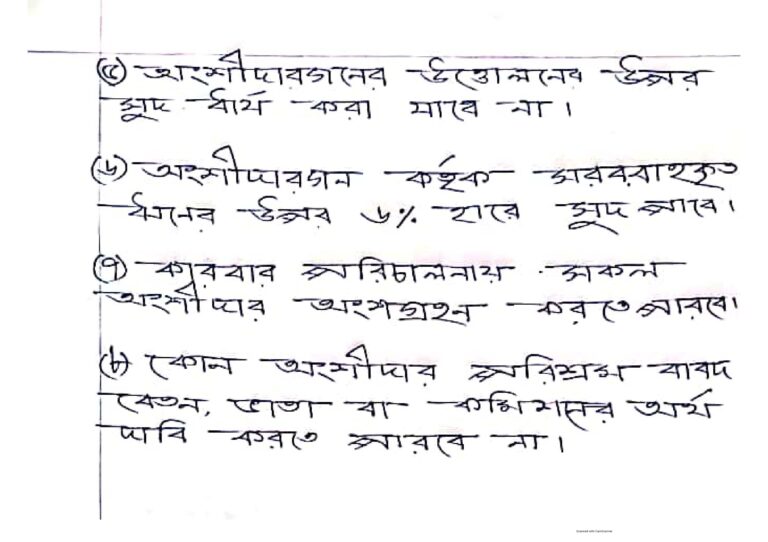 (৫) অংশীদারগনের উত্তোলনের উপর
সুদ ধার্য করা যাবে না।
(৬) অংশীদারগন কর্তৃক সরবরাহকৃত
ঋনের উপর ৬% হারে সুদ পাবে।
(৭) কারবার পরিচালনায় সকল
অংশীদার অংশগ্রহন করতে পারবে।
(৮) কোন অংশীদার পরিশ্রম বাবদ
বেতন, ভাতা বা কমিশনের অর্থ
দাবি করতে পারবে না।